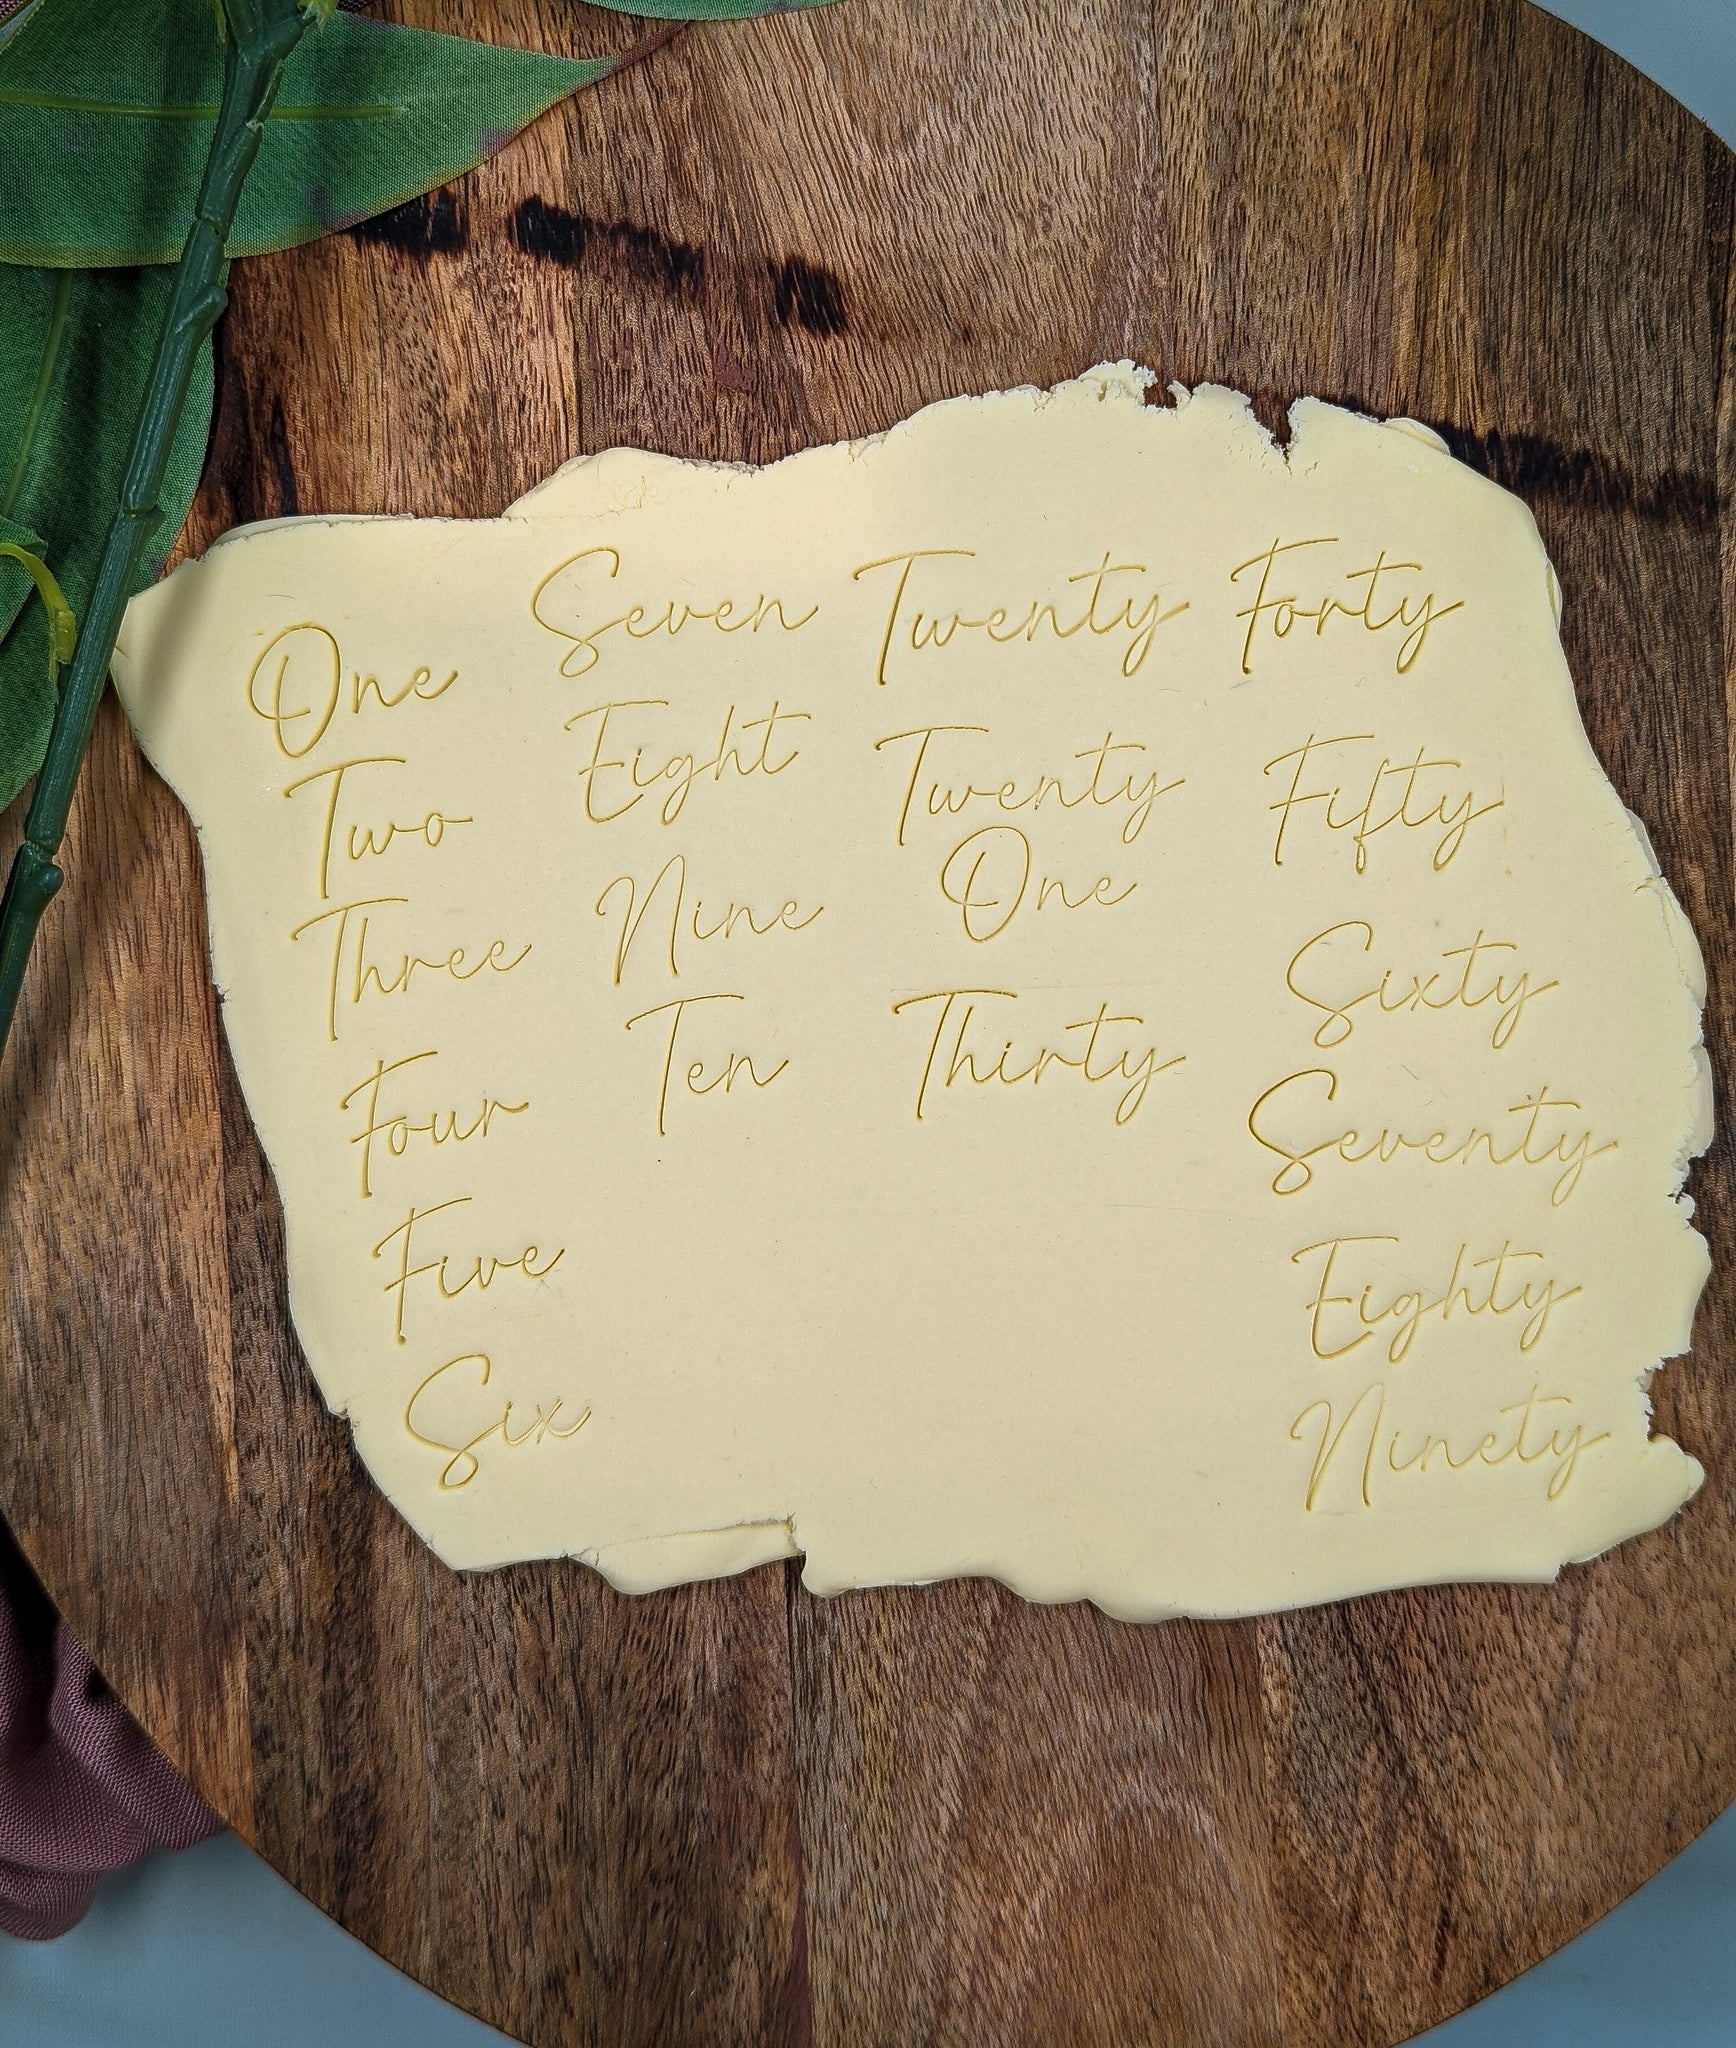 One
Two
Three
Four
Five
Six
Seven
Eight
Nine
Ten
Twenty
Twenty
One
Thirty
Forty
Fifty
Sixty
Seventy
Eighty
Ninety